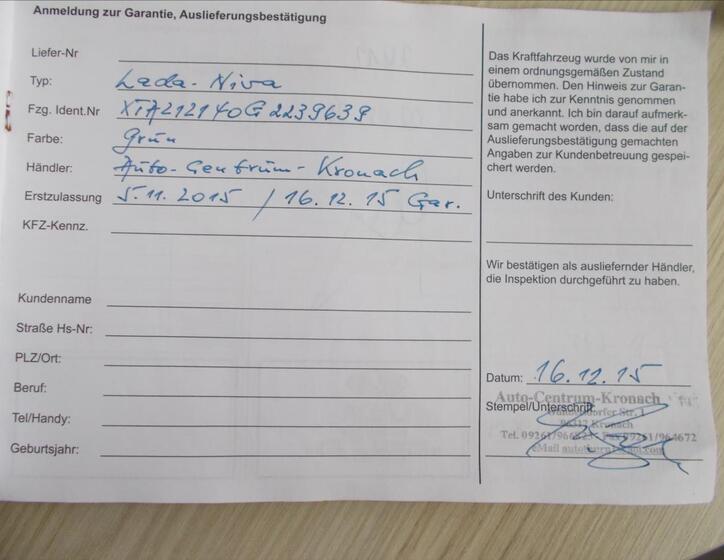 Anmeldung zur Garantie, Auslieferungsbestätigung
Liefer-Nr
Typ: Lada-Niva
Fzg. Ident.Nr XTA212140G2239639
Farbe: Grün
Händler: Auto-Centrum-Kronach
Erstzulassung 5.11.2015 / 16.12.15 Gar.
KFZ-Kennz.
Kundenname
Straße Hs-Nr:
PLZ/Ort:
Beruf:
Tel/Handy:
Geburtsjahr:
Das Kraftfahrzeug wurde von mir in
einem ordnungsgemäßen Zustand
übernommen. Den Hinweis zur Garan-
tie habe ich zur Kenntnis genommen
und anerkannt. Ich bin darauf aufmerk-
sam gemacht worden, dass die auf der
Auslieferungsbestätigung gemachten
Angaben zur Kundenbetreuung gespei-
chert werden.
Unterschrift des Kunden:
Wir bestätigen als ausliefernder Händler,
die Inspektion durchgeführt zu haben.
Datum: 16.12.15
Auto-Centrum-Kronach
Stempel/Unterschrift
Str. 1
Kronach
Tel. /964672
eMail